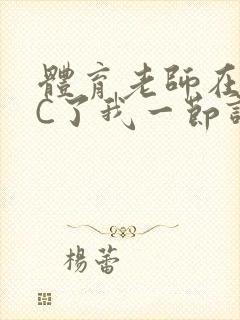 體育老師在
C了我一節
楊蕾